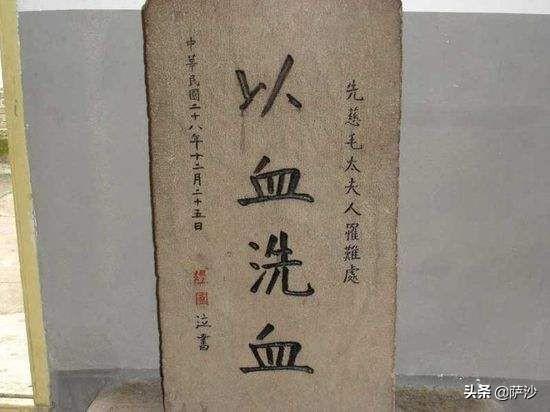 先慈毛太夫人罹難處
以血洗血
中華民國二十八年十二月二十五日
經國泣書
头条 @萨沙